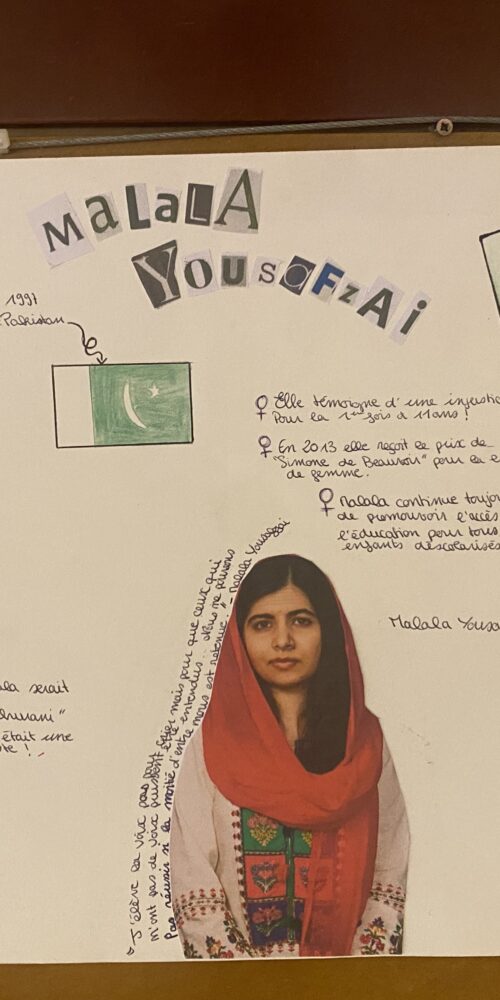 MALALA
YOUSAFZAI
1997
Pakistan
♀ Elle témoigne d'une injustic
Pour la 1ère fois à 11 ans !
♀ En 2013 elle reçoit le prix de
"Simone de Beauvoir" pour la
de femme.
♀ Malala continue toujou
de promouvoir l'accès
l'éducation pour tous
enfants déscolarisés
Malala Yousa
la serait
était une
te !
J'élève la voix pas pour crier mais pour que ceux qui
n'ont pas de voix puissent être entendus... Nous ne pouvons
pas réussir si la moitié d'entre nous est retenue." - Malala Yousafzai